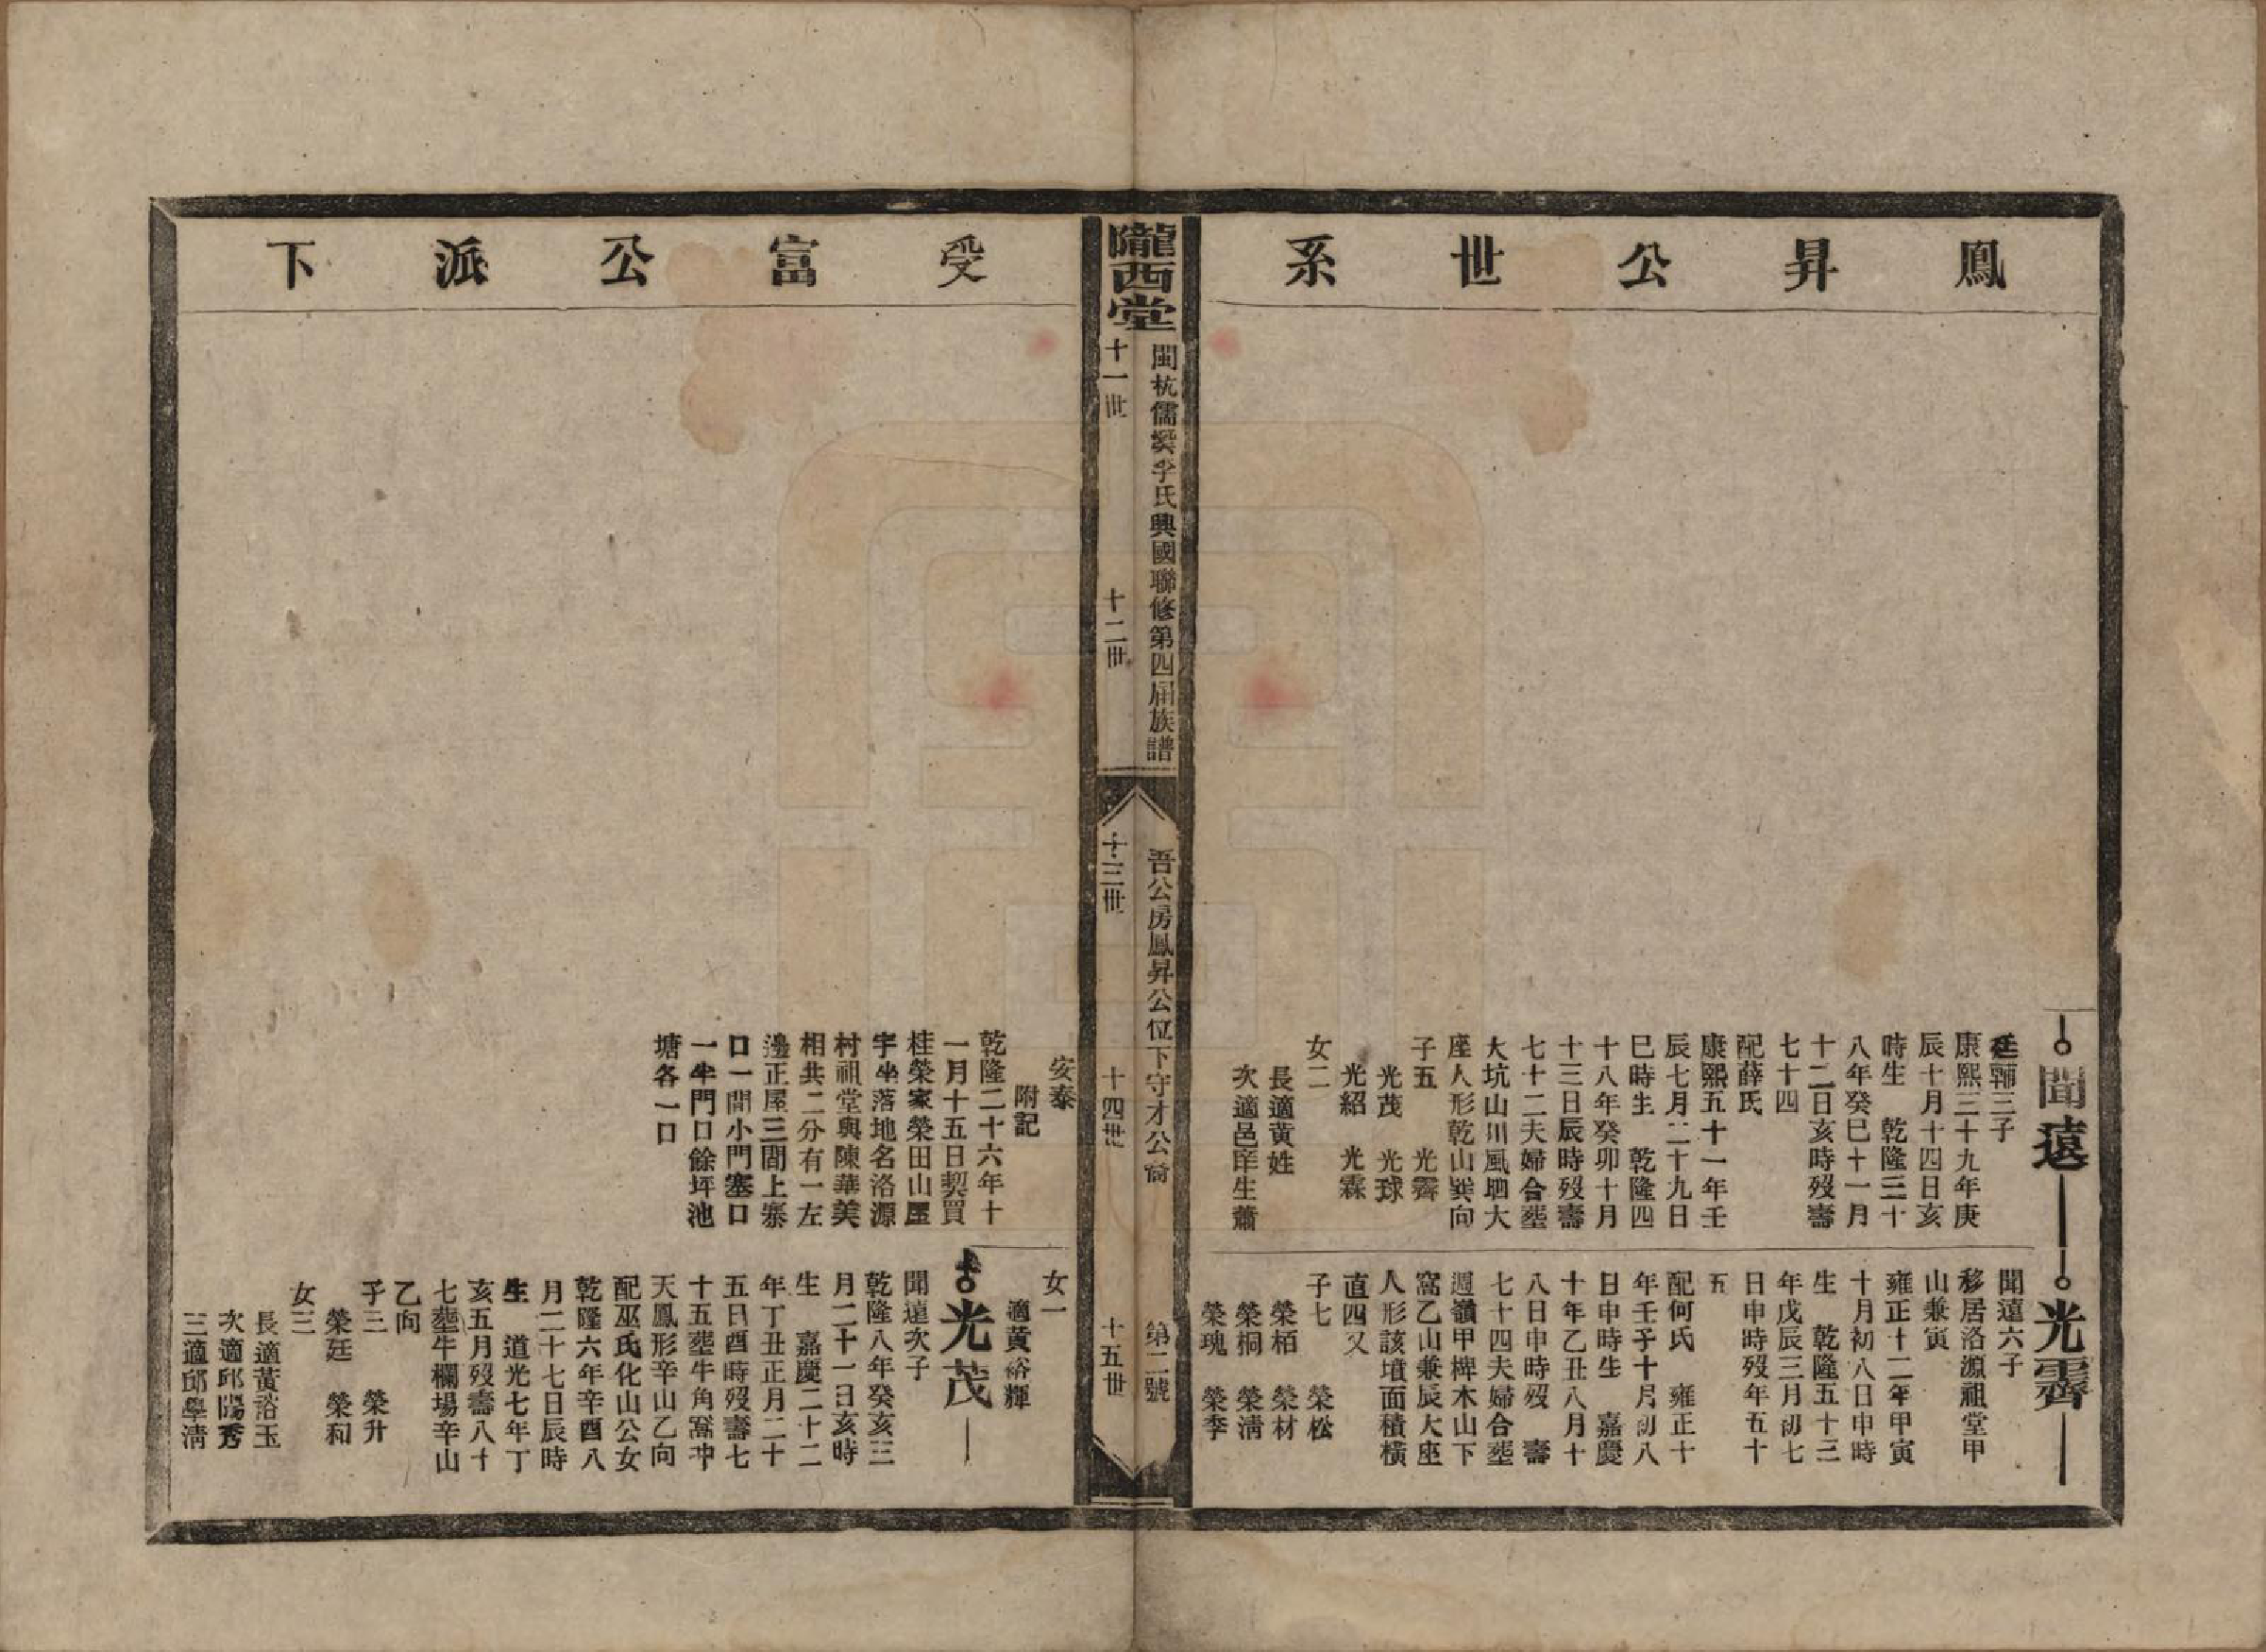 鳳昇公世系
聞遠
廷輔三子
康熙三十九年庚
辰十月十四日亥
時生　乾隆三十
八年癸巳十一月
十二日亥時歿壽
七十四
配薛氏
康熙五十一年壬
辰七月二十九日
巳時生　乾隆四
十八年癸卯十月
十三日辰時歿壽
七十二夫婦合塟
大坑山川風吧大
座人形乾山巽向
子五　光霽
光茂　光球
光紹　光霖
女二
長適黄姓
次適邑庠生蕭
光霽
聞遠六子
移居洛源祖堂甲
山兼寅
雍正十二年甲寅
十月初八日申時
生　乾隆五十三
年戊辰三月初七
日申時歿年五十
五
配何氏　雍正十
年壬子十月初八
日申時生　嘉慶
十年乙丑八月十
八日申時歿　壽
七十四夫婦合塟
週嶺甲椑木山下
窩乙山兼辰大座
人形該墳面積橫
直四又
子七　榮松
榮栢　榮材
榮桐　榮淸
榮瑰　榮李
隴西堂
閩杭儒溪李氏興國聯修第四屆族譜
吾公房鳳昇公位下守才公裔
第二號
十一世
十二世
十三世
十四世
十五世
受富公派下
安泰
附記
乾隆二十六年十
一月十五日契買
桂榮家榮田山屋
宇坐落地名洛源
村祖堂與陳華美
相共二分有一左
邊正屋三間上寨
口一間小門塞口
一半門口餘坪池
塘各一口
女一
適黄裕輝
光茂
聞遠次子
乾隆八年癸亥三
月二十一日亥時
生　嘉慶二十二
年丁丑正月二十
五日酉時歿壽七
十五塟牛角窩冲
天鳳形辛山乙向
配巫氏化山公女
乾隆六年辛酉八
月二十七日辰時
生　道光七年丁
亥五月歿壽八十
七塟牛欄塲辛山
乙向
子三　榮升
榮廷　榮和
女三
長適黄裕玉
次適邱陽秀
三適邱學淸